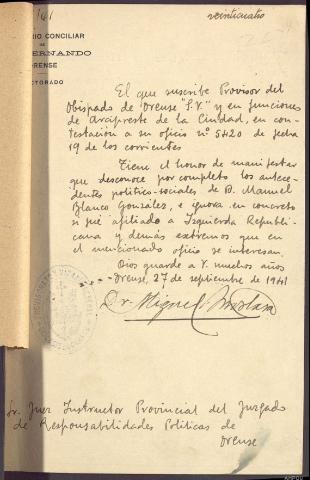 141
veinticuatro
RIO CONCILIAR
DE
ERNANDO
ORENSE
CTORADO
El que suscribe Provisor del
Obispado de Orense "S.V." y en funciones
de Arcipreste de la Ciudad, en con-
testación a su oficio nº 5420 de fecha
19 de los corrientes
Tiene el honor de manifestar
que desconoce por completo los antece-
dentes político-sociales de D. Manuel
Blanco González, e ignora en concreto
si fué afiliado a Izquierda Republi-
cana y demás extremos que en
el mencionado oficio se interesan.
Dios guarde a V. muchos años
Orense, 27 de septiembre de 1941
Dr. Miguel
Sr. Juez Instructor Provincial del Juzgado
de Responsabilidades Políticas de
Orense